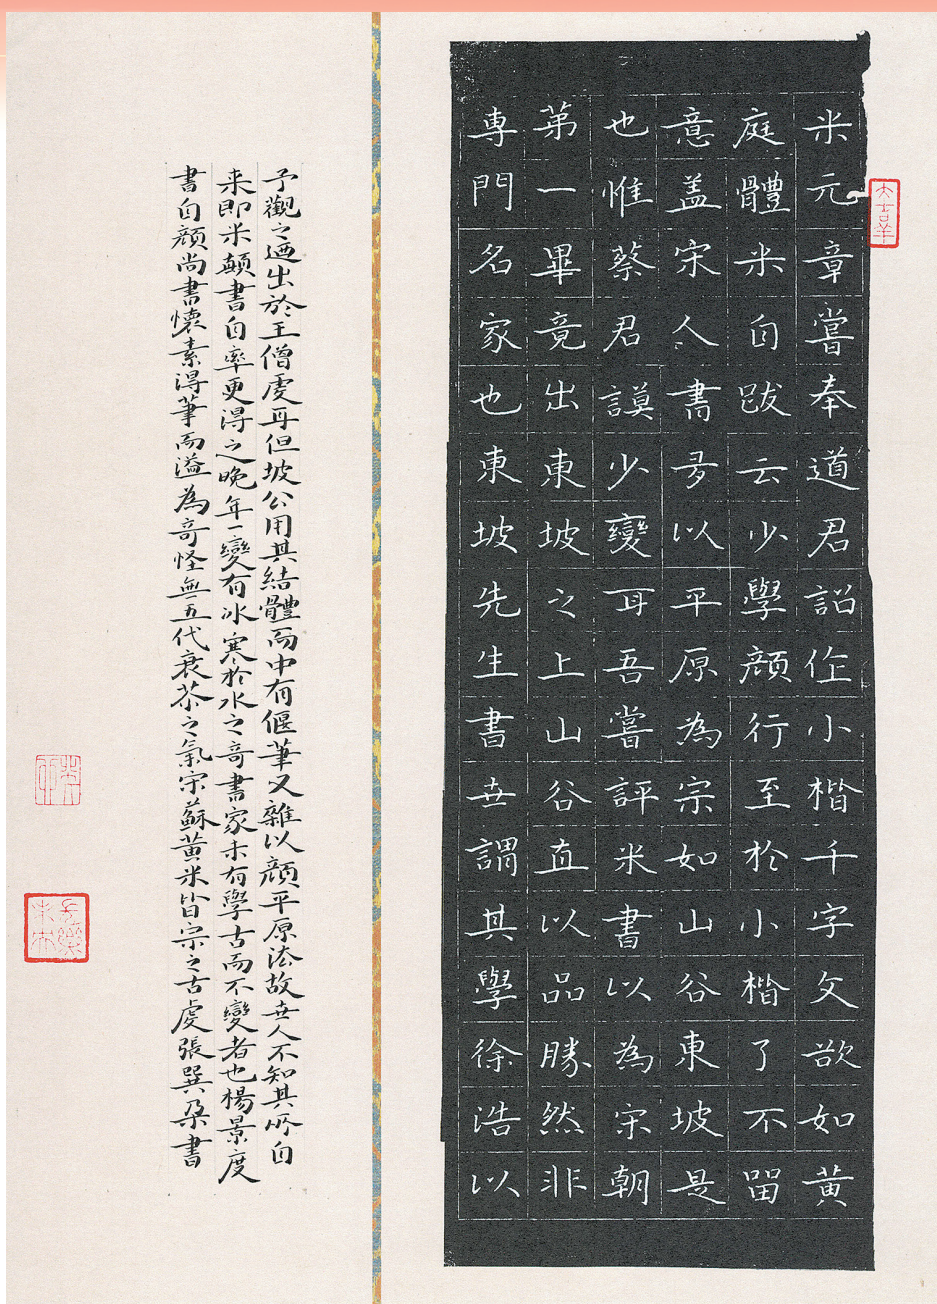 米元章嘗奉道君詔作小楷千字文欲如黄
庭體米自跋云少學顔行至於小楷了不留
意盖宋人書多以平原為宗如山谷東坡是
也惟蔡君謨少變耳吾嘗評米書以為宋朝
第一畢竟出東坡之上山谷直以品勝然非
專門名家也東坡先生書世謂其學徐浩以
大吉羊
予觀之廼出於王僧虔耳但坡公用其結體而中有偃筆又雜以顔平原法故世人不知其所自
来即米顛書自率更得之晚年一變有冰寒於水之奇書家未有學古而不變者也楊景度
書自顔尚書懷素得筆而溢為奇怪無五代衰苶之氣宋蘇黄米皆宗之古虔張巽書
長樂未央